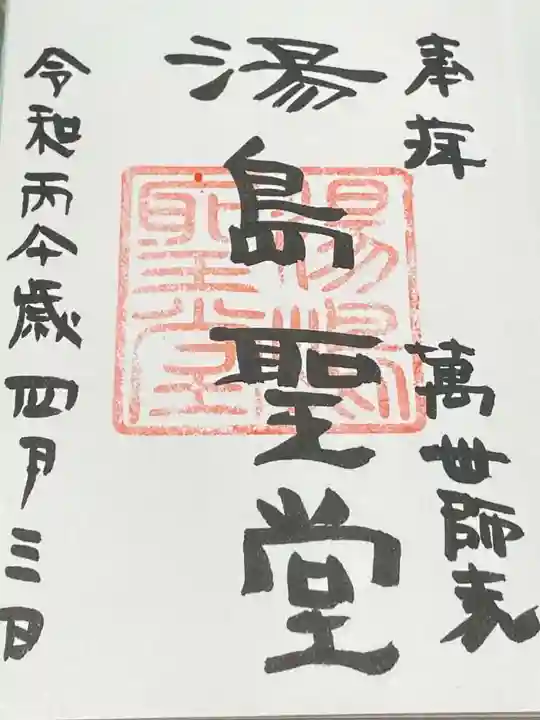 奉拝
萬世師表
湯島聖堂
湯島聖堂
令和丙午歳四月三日